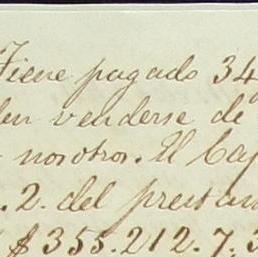 Tiene pagado 34
den venderse de
nosotros. El Cap
. 2. del prestam
$355.212.7.3